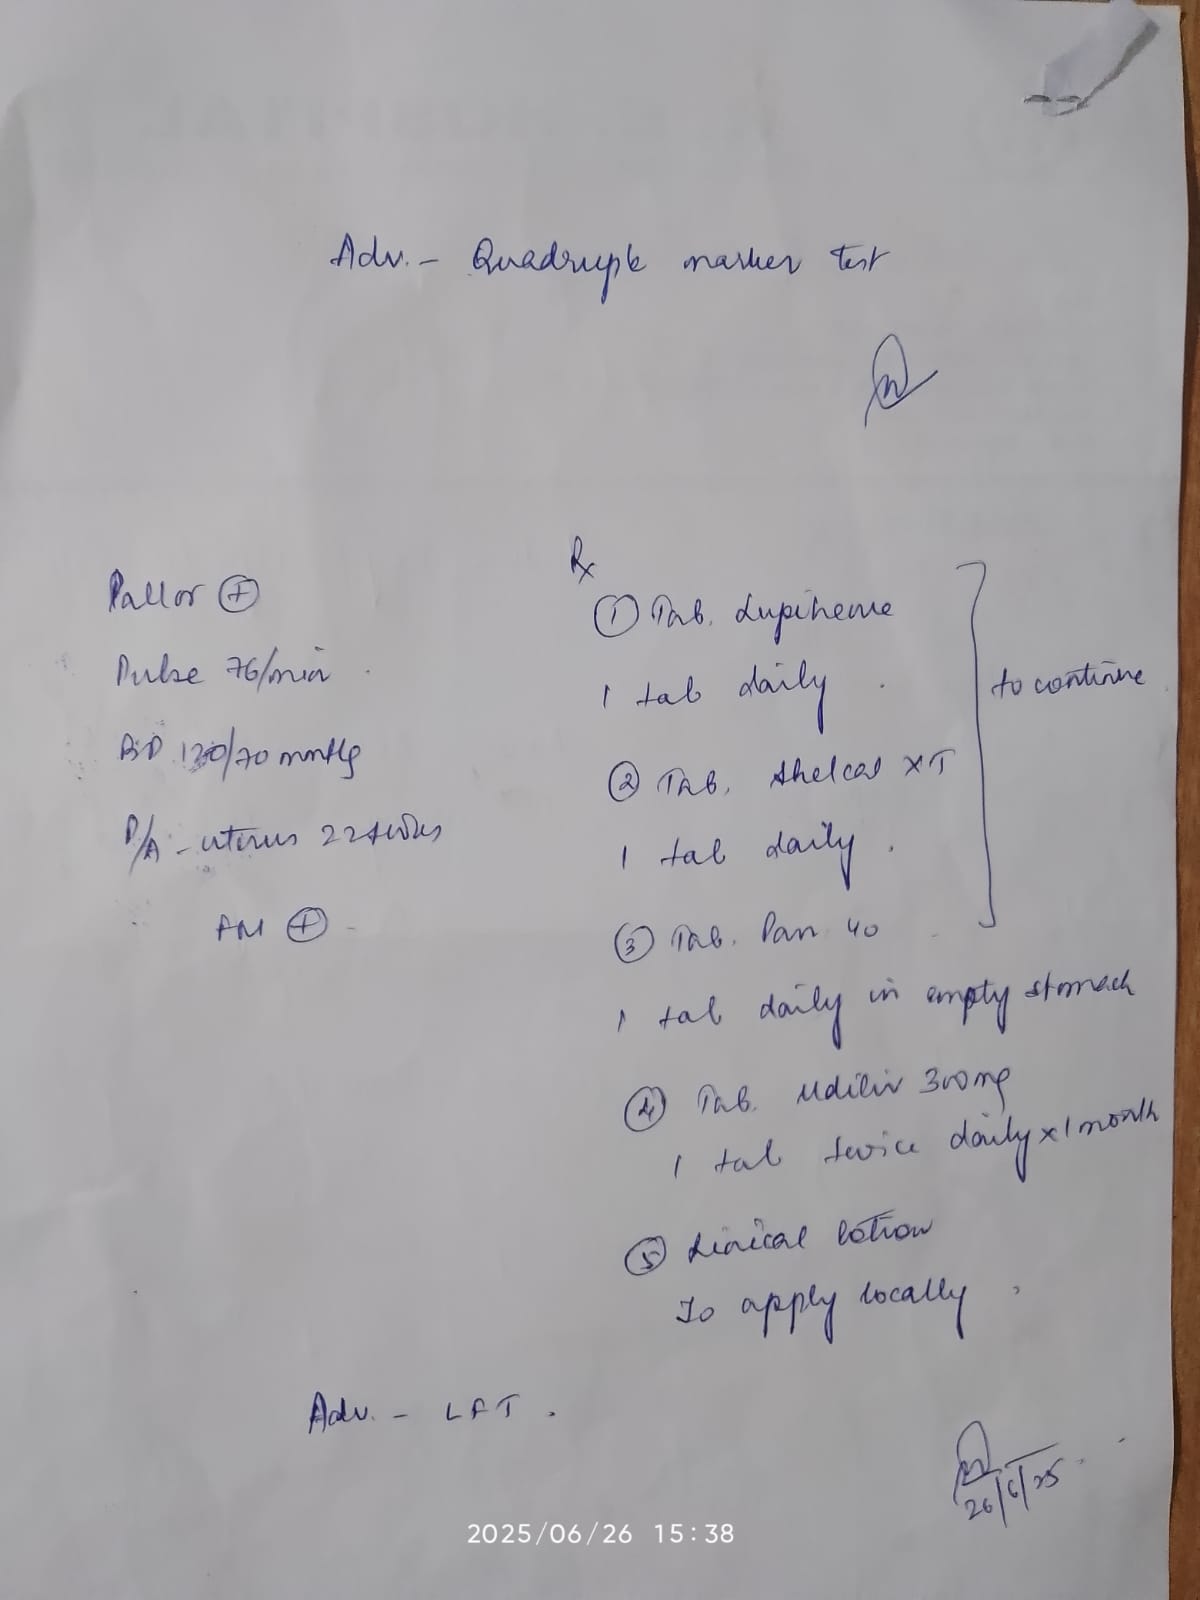 Adv. - Quadruple marker Test
Pallor (+)
Pulse 76/min
BP 120/70 mmHg
P/A - uterus 22 wks
FM (+)
Rx
① Tab. Lupiheme
1 tab daily
② Tab. Shelcal XT
1 tab daily.
to continue
③ Tab. Pan 40
1 tab daily in empty stomach
④ Tab. Udiliv 300mg
1 tab twice daily x 1 month
⑤ lotion
To apply locally
Adv. - LFT.
26/6/25
2025/06/26 15:38